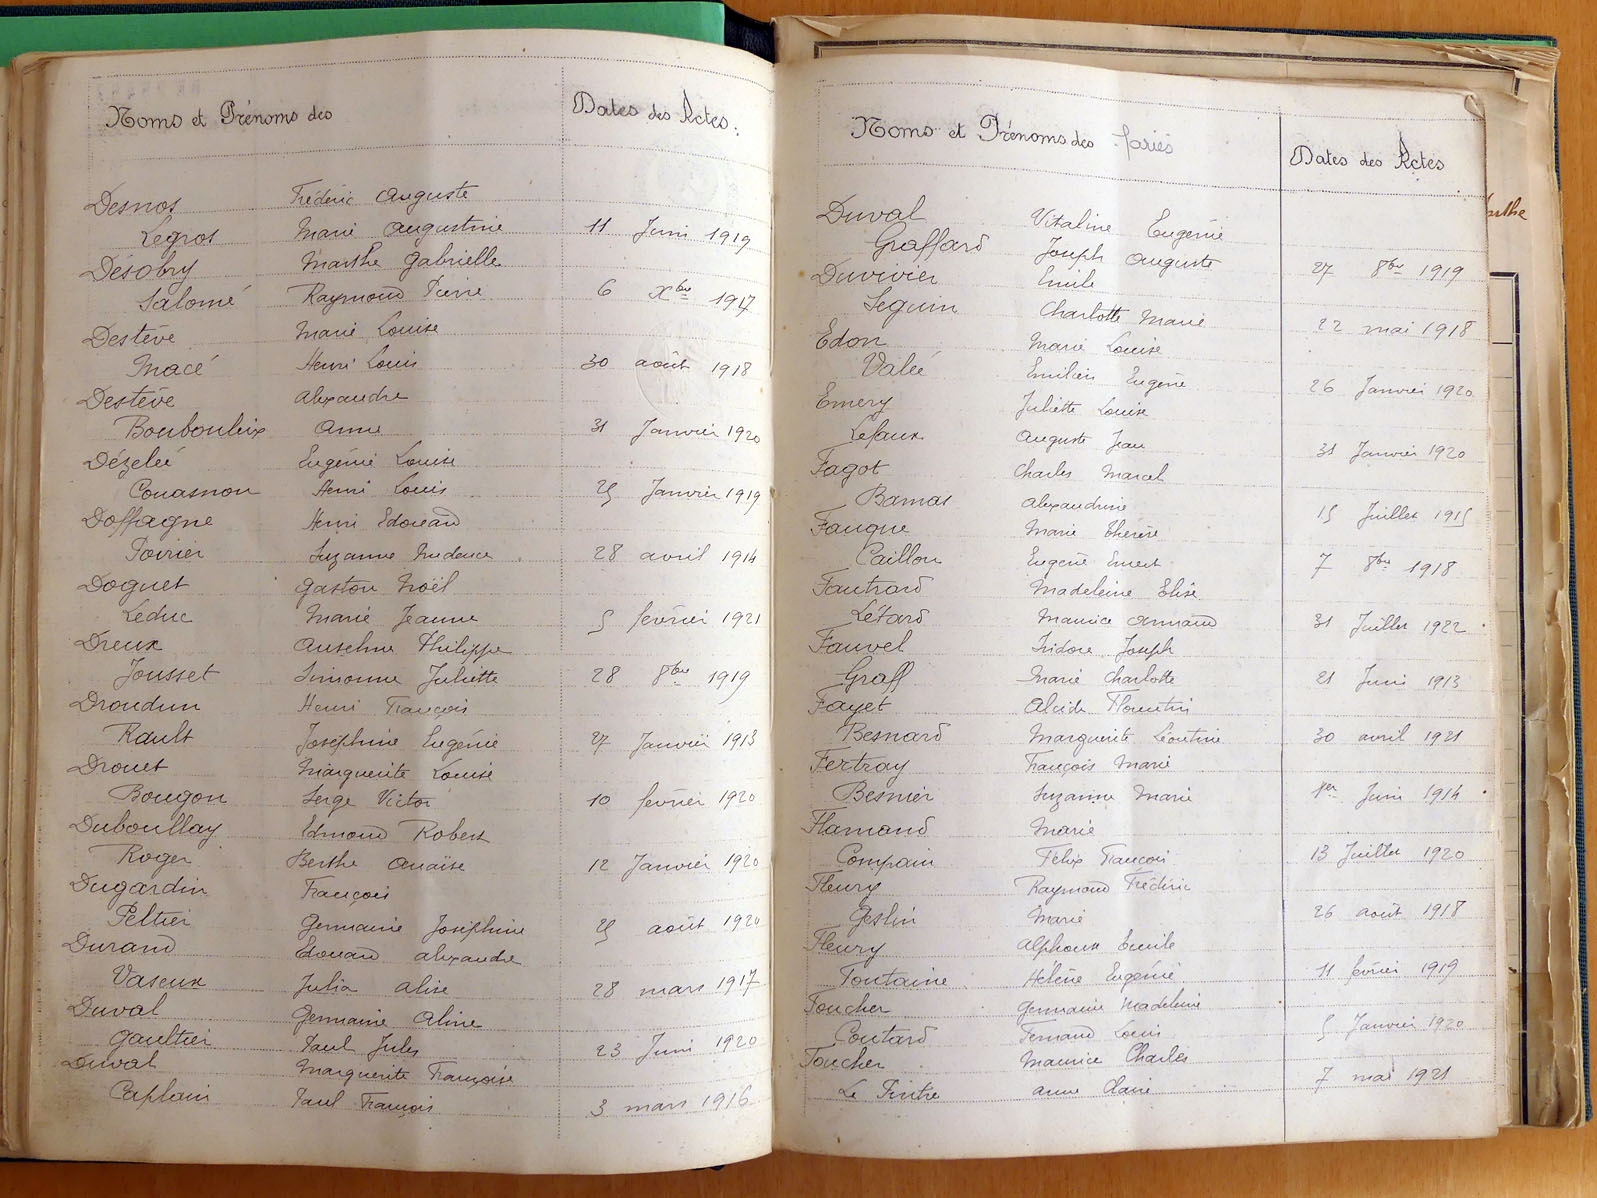 Noms et Prénoms des Dates des Actes:
Desnos Frédéric Auguste
Legros Marie Augustine 11 Juin 1919
Désobry Marthe Gabrielle
Salomé Raymond Pierre 6 Xbre 1917
Destève Marie Louise
Macé Henri Louis 30 août 1918
Destève Alexandre
Bonbonleix Anne 31 Janvier 1920
Dézeleé Eugénie Louise
Couasnon Henri Louis 25 Janvier 1919
Doffagne Henri Edouard
Poirier Suzanne Prudence 28 avril 1914
Doguet Gaston Noël
Leduc Marie Jeanne 5 février 1921
Dreux Anselme Philippe
Jousset Simonne Juliette 28 8bre 1919
Droudun Henri François
Rault Joséphine Eugénie 27 Janvier 1913
Drouet Marguerite Louise
Bougon Serge Victor 10 février 1920
Duboullay Edmond Robert
Roger Berthe Anaïse 12 Janvier 1920
Dugardin François
Peltier Germaine Joséphine 25 août 1920
Durand Edouard Alexandre
Vaseux Julia Alise 28 mars 1917
Duval Germaine Aline
Gaultier Paul Jules 23 Juin 1920
Duval Marguerite Françoise
Caplain Paul François 3 mars 1916
Noms et Prénoms des Dates des Actes
Duval Vitaline Eugénie
Graffard Joseph Auguste 27 8bre 1919
Duvivier Emile
Seguin Charlotte Marie 22 mai 1918
Edon Marie Louise
Valeé Emilien Eugène 26 Janvier 1920
Emery Juliette Louise
Lefaux Auguste Jean 31 Janvier 1920
Fagot Charles Marcel
Bamas Alexandrine 15 Juillet 1915
Faugue Marie Thérèse
Caillon Eugène Ernest 7 8bre 1918
Fautrard Madeleine Elise
Létard Maurice Armand 31 Juillet 1922
Fauvel Isidore Joseph
Graff Marie Charlotte 21 Juin 1913
Fayet Alcide Florentin
Besnard Marguerite Léontine 30 avril 1921
Fertray François Marie
Besnier Suzanne Marie 1er Juin 1914
Flamand Marie
Compain Félix François 13 Juillet 1920
Fleury Raymond Frédéric
Geslin Marie 26 août 1918
Fleury Alphonse Emile
Fontaine Hélène Eugénie 11 février 1919
Foucher Germaine Madeleine
Coutard Fernand Louis 5 Janvier 1920
Foucher Maurice Charles
Le Peutre Anne Claire 7 mai 1921